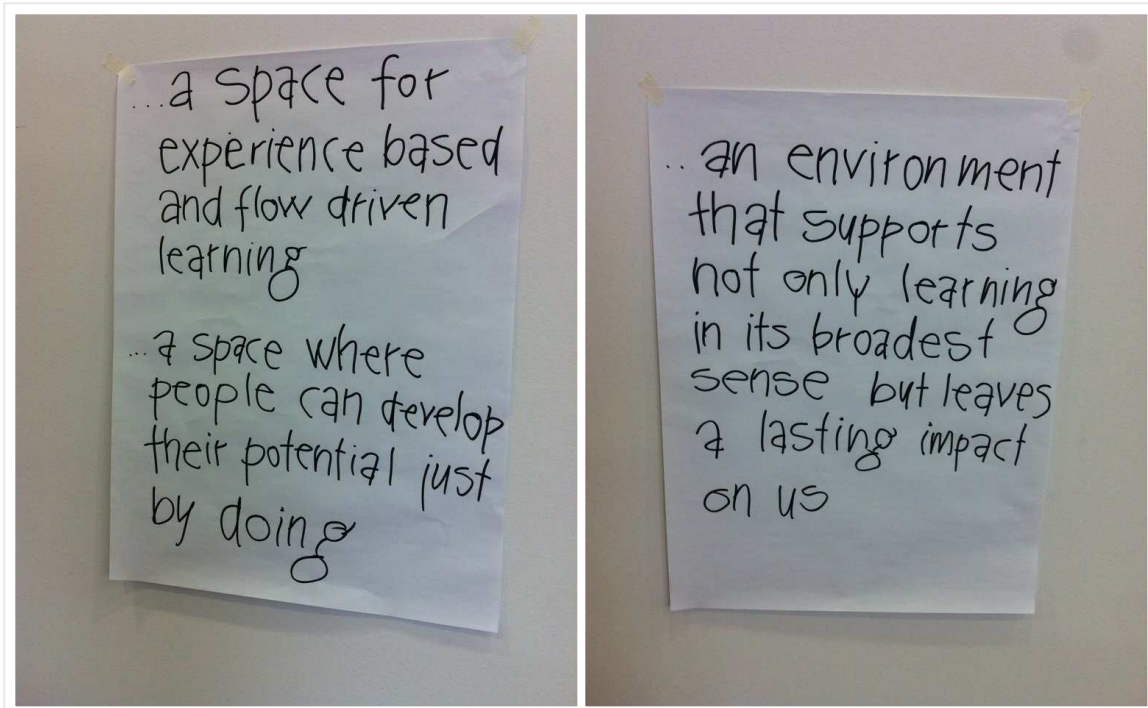 ...a space for
experience based
and flow driven
learning
...a space where
people can develop
their potential just
by doing
..an environment
that supports
not only learning
in its broadest
sense but leaves
a lasting impact
on us